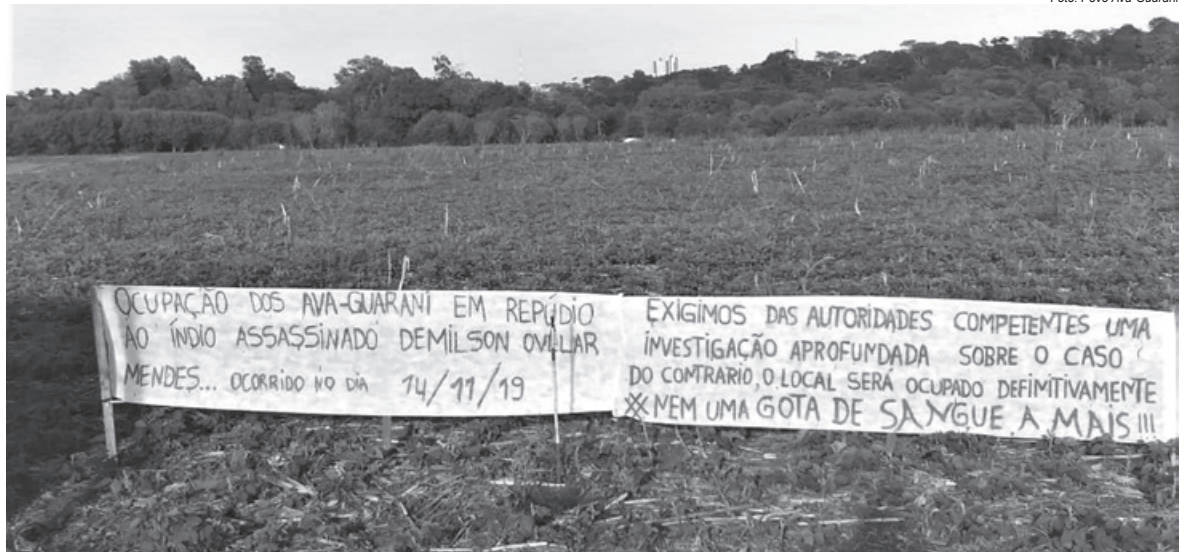 Foto: Povo Ava-Guarani
OCUPAÇÃO DOS AVA-GUARANI EM REPÚDIO
AO ÍNDIO ASSASSINADO DEMILSON OVELAR
MENDES... OCORRIDO NO DIA 14/11/19
EXIGIMOS DAS AUTORIDADES COMPETENTES UMA
INVESTIGAÇÃO APROFUNDADA SOBRE O CASO
DO CONTRARIO, O LOCAL SERÁ OCUPADO DEFIMITIVAMENTE
NEM UMA GOTA DE SANGUE A MAIS!!!